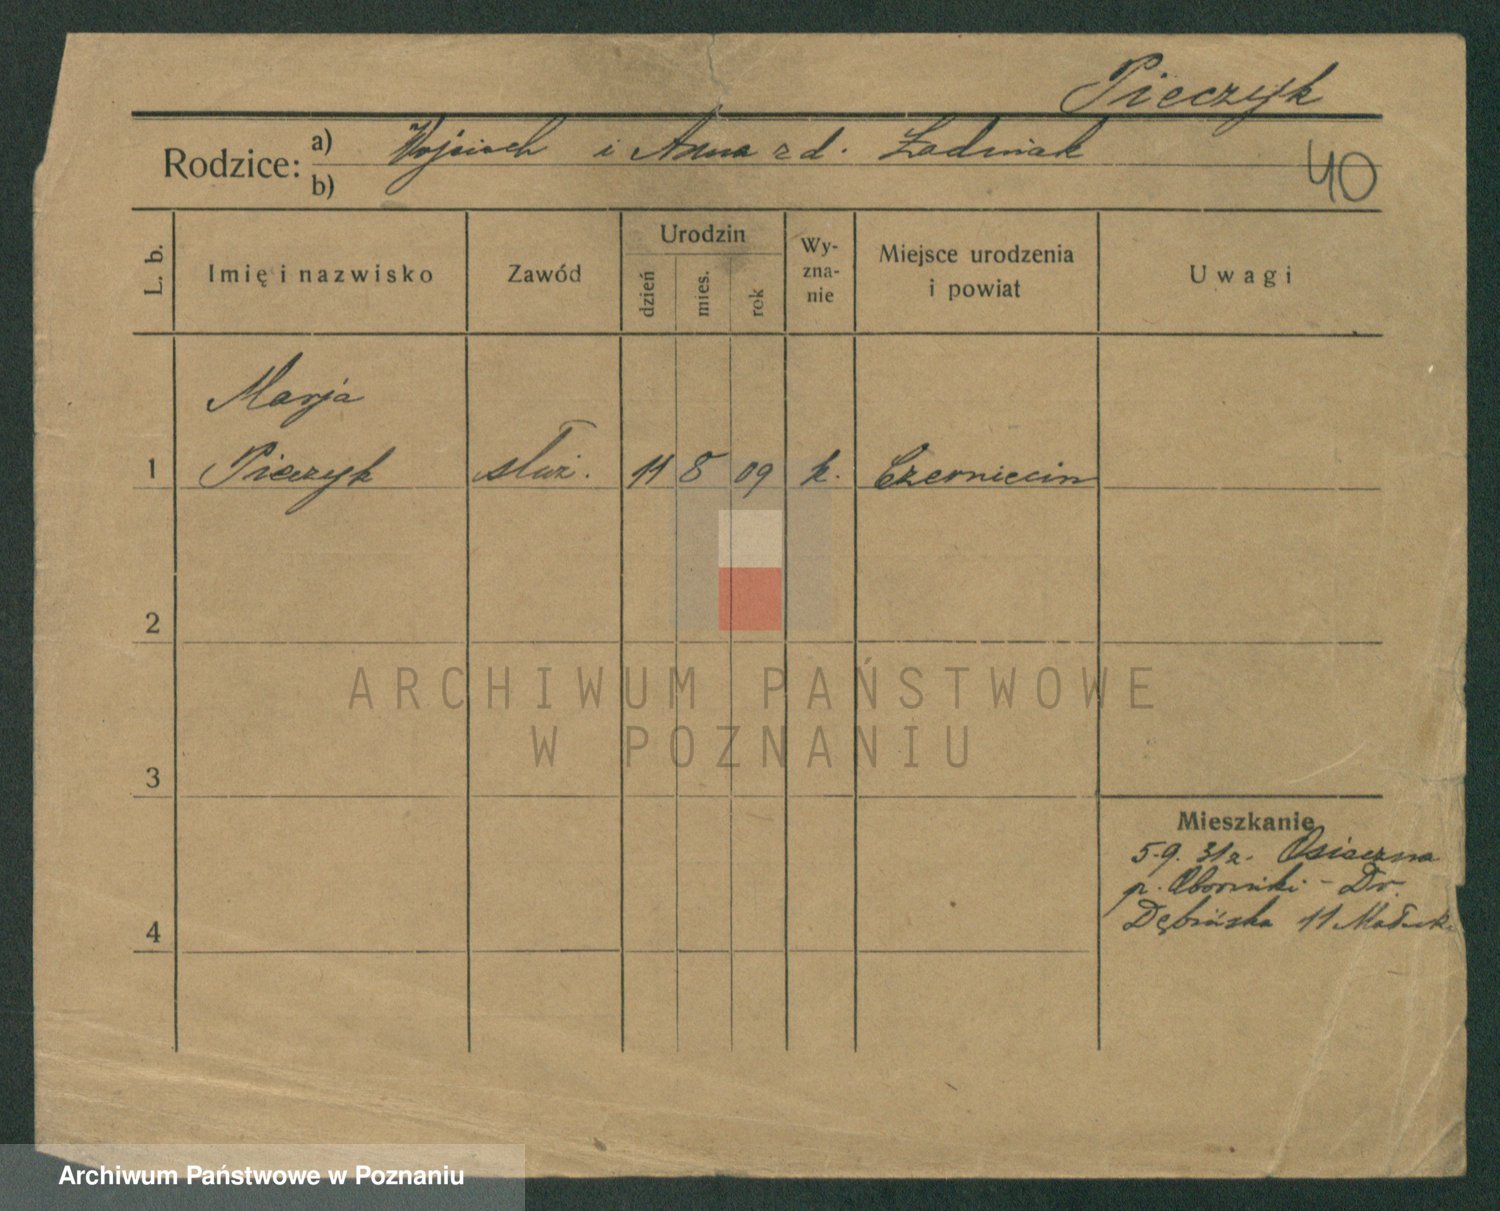 Pieczyk
Rodzice: a) Wojciech i Anna z d. Ladniak
b)
40
L. b. Imię i nazwisko Zawód Urodzin dzień mies. rok Wy-zna-nie Miejsce urodzenia i powiat Uwagi
Marja
1 Pieczyk służ. 11 8 09 k. Czerniecin
2
3
4
Mieszkanie
5.9.31r. Osieczna
p. - Dr.
Dębińska 11
ARCHIWUM PAŃSTWOWE
W POZNANIU
Archiwum Państwowe w Poznaniu